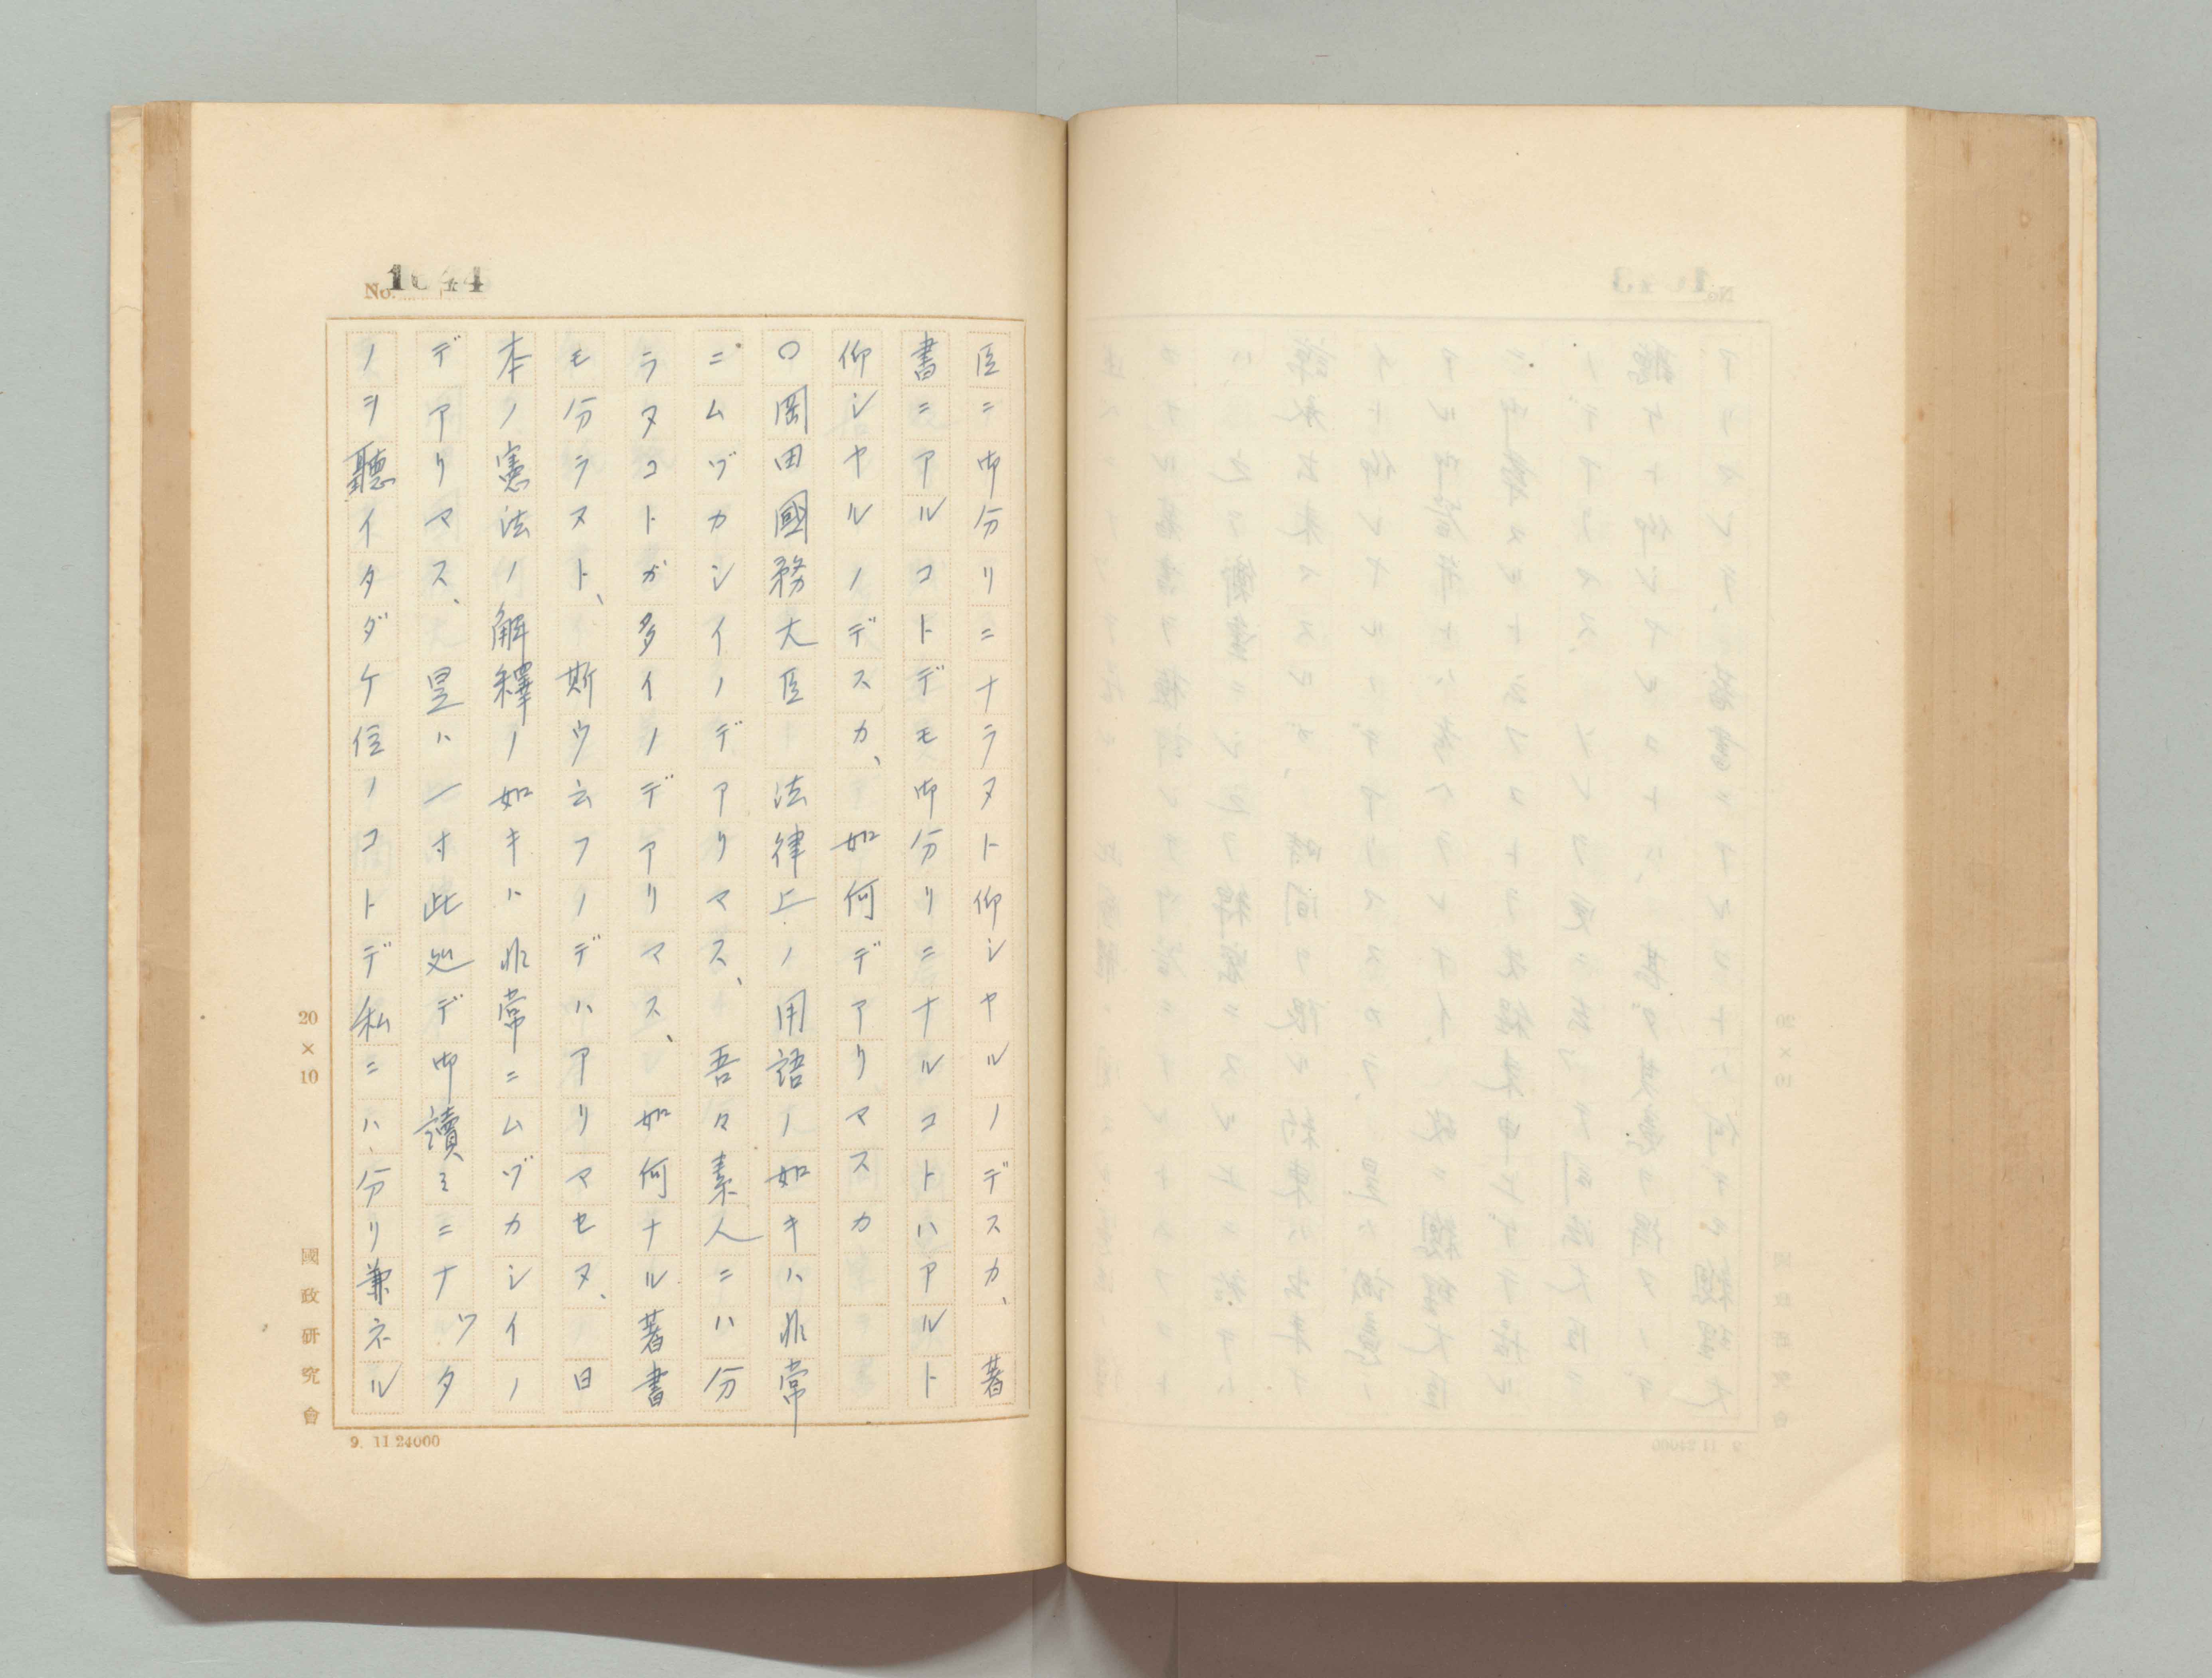 No. 1044
臣ニ御分リニナラヌト仰シヤルノデスカ、著
書ニアルコトデモ御分リニナルコトハアルト
仰シヤルノデスカ、如何デアリマスカ
〇岡田國務大臣 法律上ノ用語ノ如キハ非常
ニムヅカシイノデアリマス、吾々素人ニハ分
ラヌコトガ多イノデアリマス、如何ナル著書
モ分ラヌト、斯ウ云フノデハアリマセヌ、日
本ノ憲法ノ解釋ノ如キハ非常ニムヅカシイノ
デアリマス、是ハ一寸此処デ御讀ミニナツタ
ノヲ聽イタダケ位ノコトデ私ニハ分リ兼ネル
20×10
國政研究會
9. 11 24000